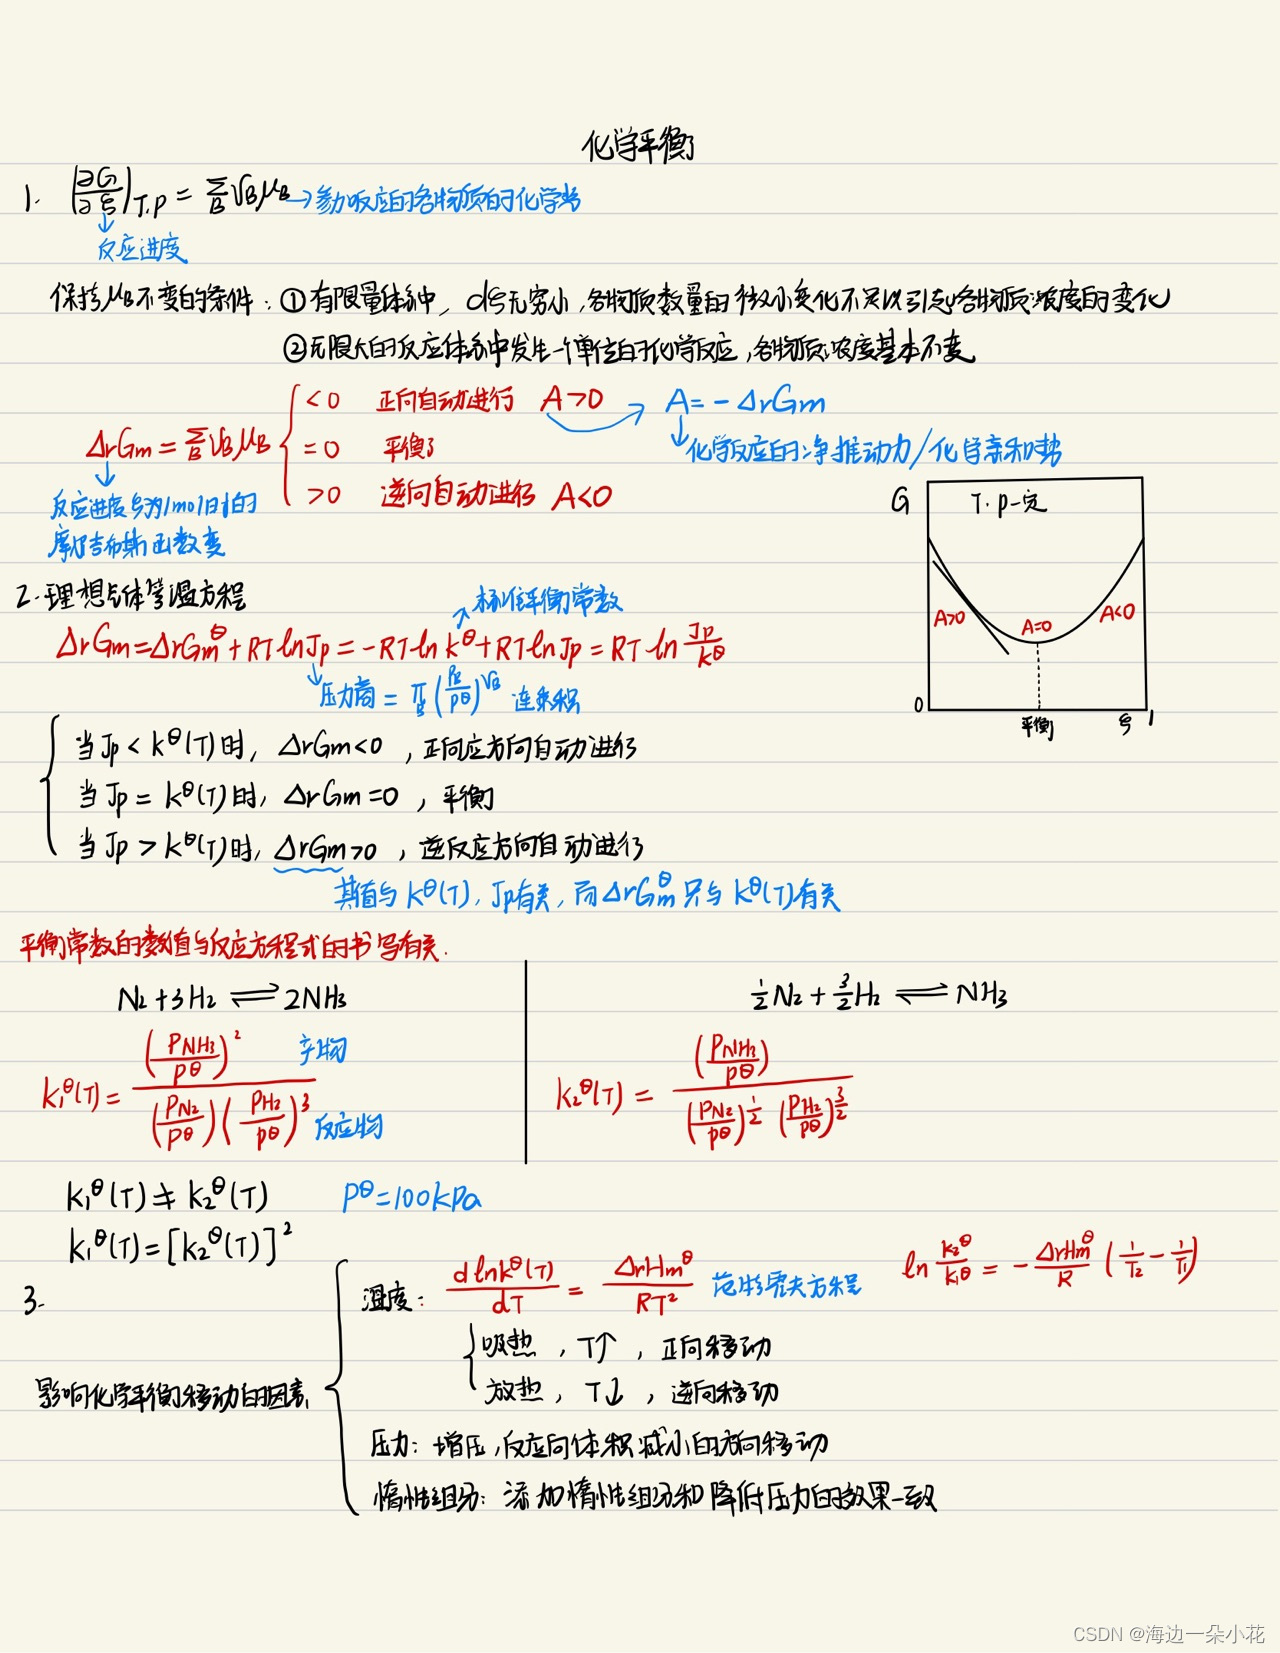 化学平衡
1. (∂G/∂ξ)T,P = ΣB νBμB → 参加反应的各物质的化学势
↓
反应进度
保持μB不变的条件：① 有限量体系中，dξ无穷小，各物质数量的微小变化不足以引起各物质浓度的变化
②无限大的反应体系中发生一个单位的化学反应，各物质浓度基本不变
<0 正向自动进行 A>0 → A=-ΔrGm
ΔrGm = ΣB νBμB =0 平衡 ↓化学反应的净推动力/化学亲和势
>0 逆向自动进行 A<0
↓
反应进度ξ为1mol时的
摩尔吉布斯函数变
G T.p一定
A>0 A=0 A<0
0 平衡 ξ 1
2.理想气体等温方程
↗标准平衡常数
ΔrGm=ΔrGm^θ+RTlnJp=-RTlnk^θ+RTlnJp=RTln Jp/k^θ
↓压力商=πB(PB/p^θ)^νB 连乘积
当Jp<k^θ(T)时，ΔrGm<0，正向应方向自动进行
当Jp=k^θ(T)时，ΔrGm=0，平衡
当Jp>k^θ(T)时，ΔrGm>0，逆反应方向自动进行
其值与k^θ(T)，Jp有关，而ΔrGm^θ只与k^θ(T)有关
平衡常数的数值与反应方程式的书写有关.
N2+3H2⇌2NH3
k1^θ(T)=(PNH3/p^θ)^2/(PN2/p^θ)(PH2/p^θ)^3 产物 反应物
1/2N2+3/2H2⇌NH3
k2^θ(T)=(PNH3/p^θ)/(PN2/p^θ)^1/2(PH2/p^θ)^3/2
k1^θ(T)≠k2^θ(T) P^θ=100kPa
k1^θ(T)=[k2^θ(T)]^2
3.
影响化学平衡移动的因素
温度：dlnk^θ(T)/dT=ΔrHm^θ/RT^2 范特霍夫方程 ln k2^θ/k1^θ=-ΔrHm^θ/R(1/T2-1/T1)
吸热，T↑，正向移动
放热，T↓，逆向移动
压力：增压，反应向体积减小的方向移动
惰性组分：添加惰性组分和降低压力的效果一致
CSDN @海边一朵小花